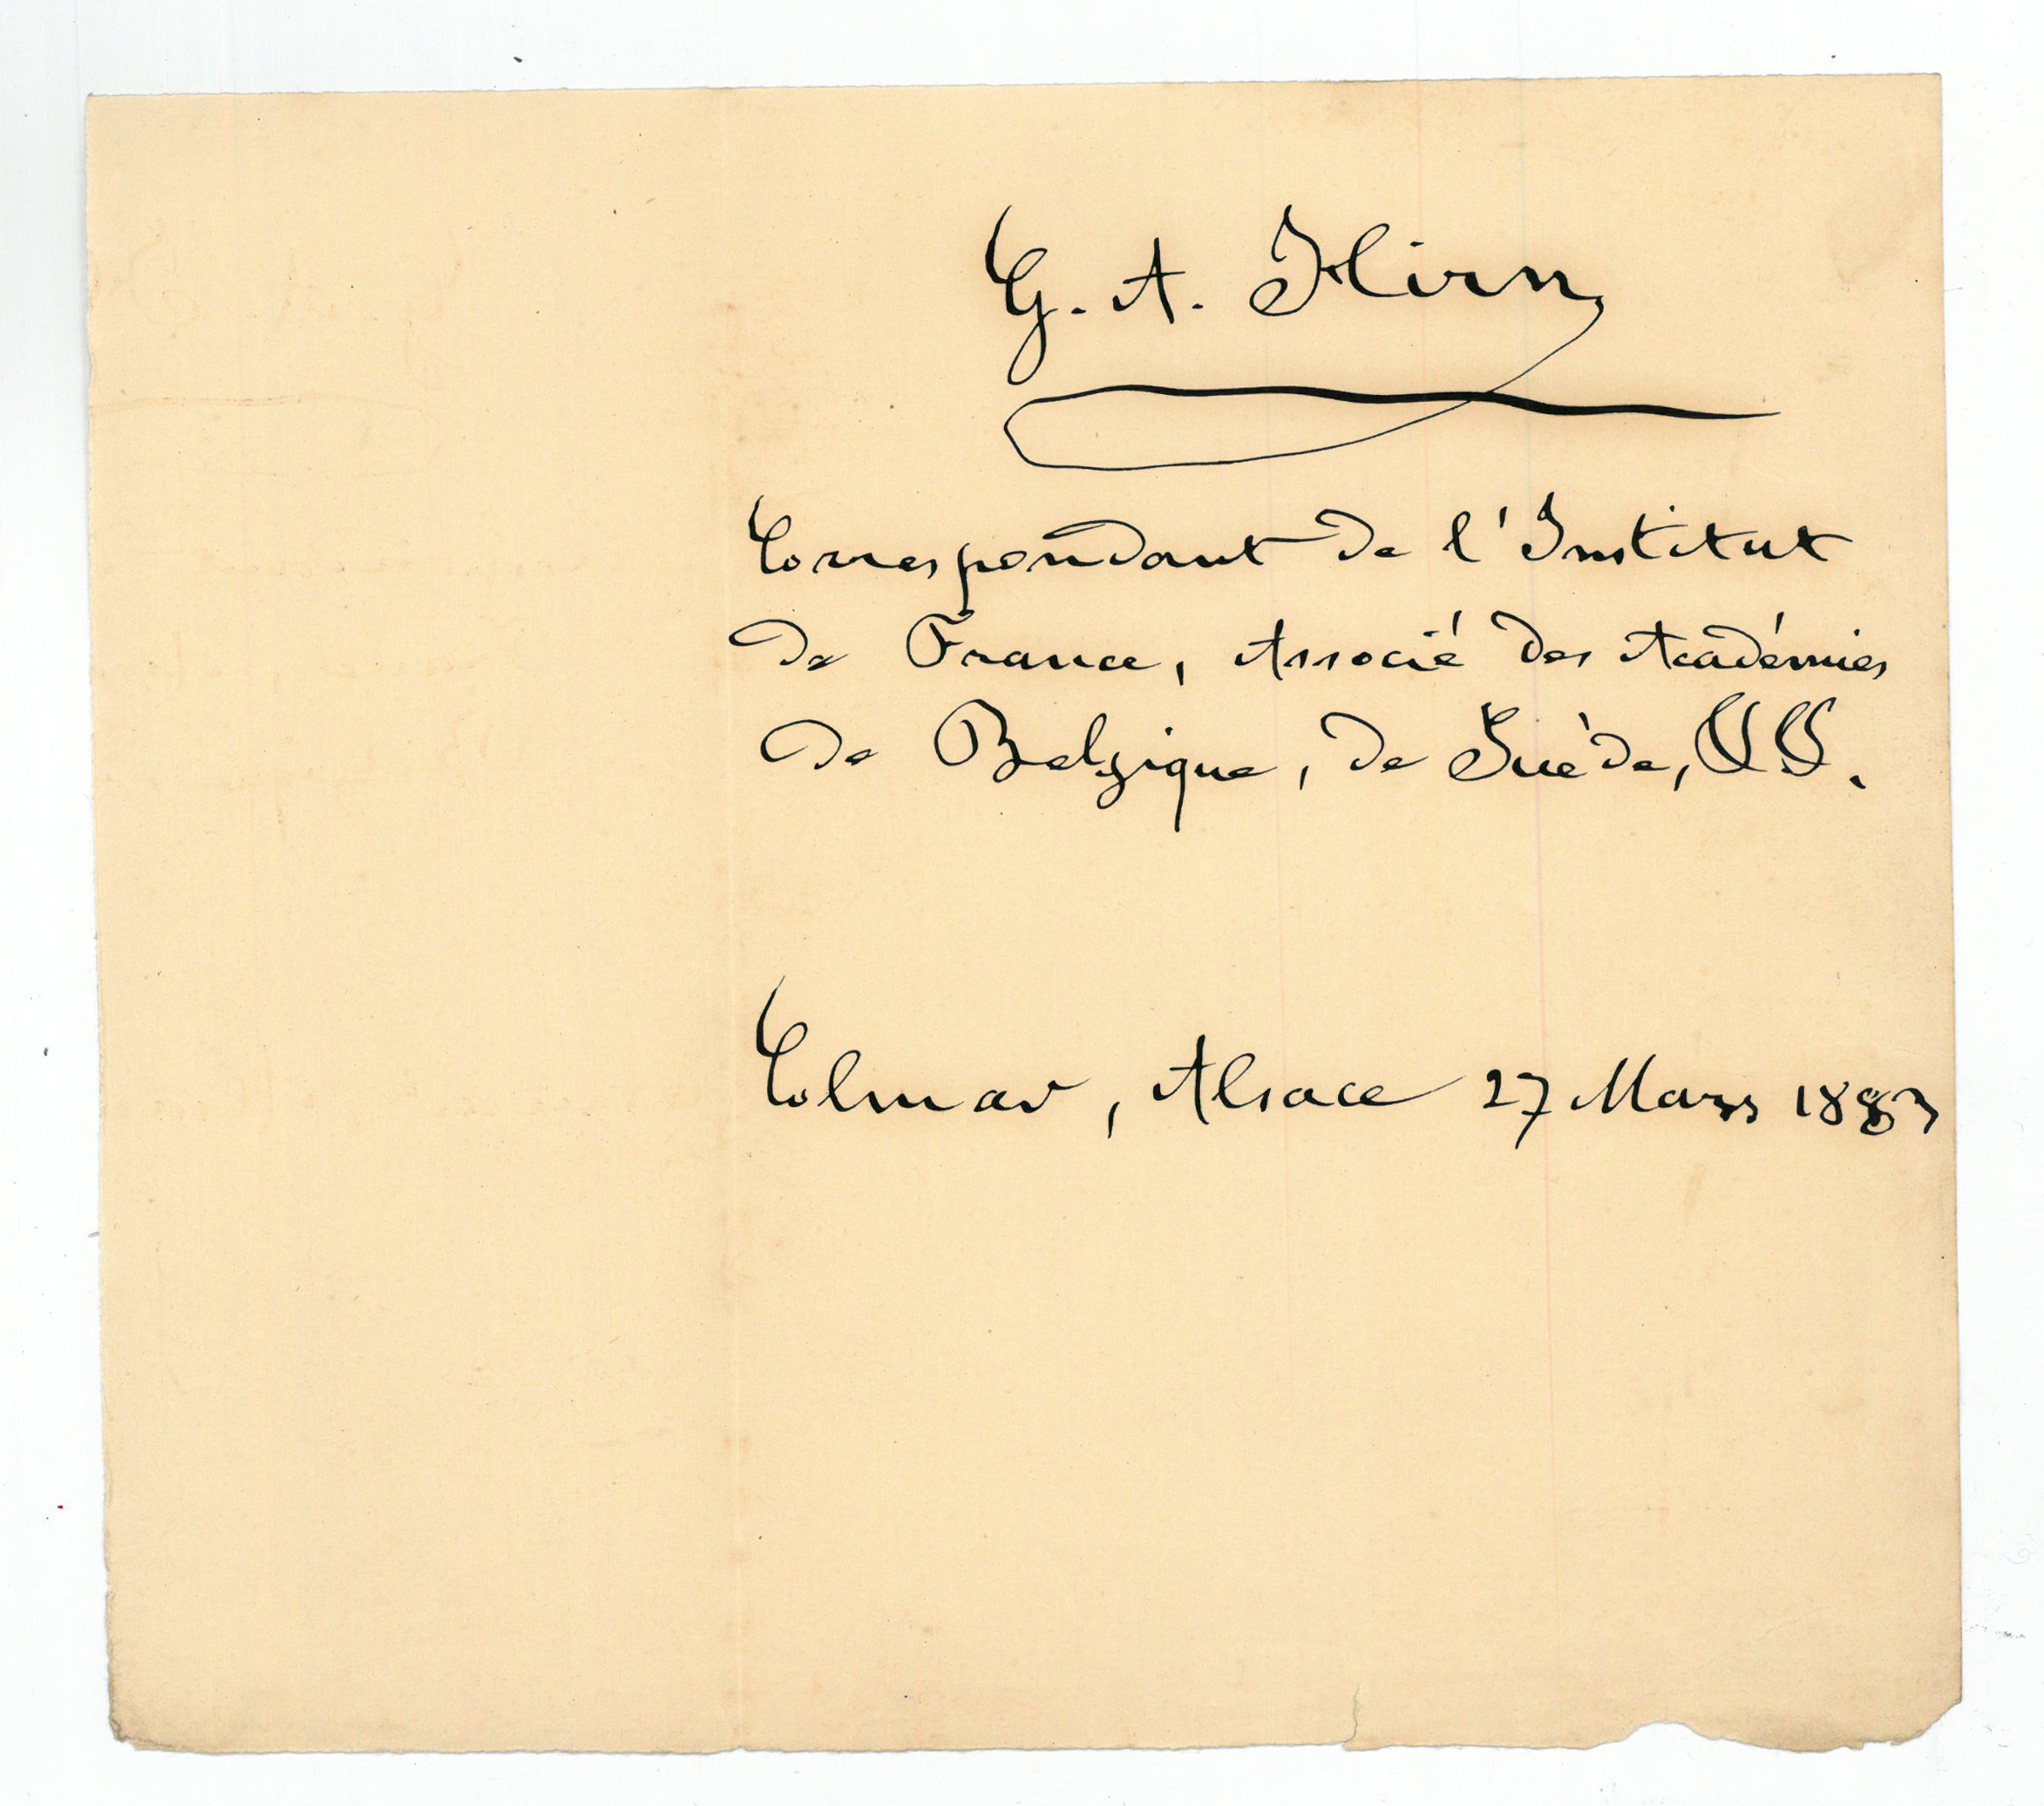 G. A. Hirn
Correspondant de l'Institut
de France, Associé des Académies
de Belgique, de Suède, &&.
Colmar, Alsace 27 Mars 1883